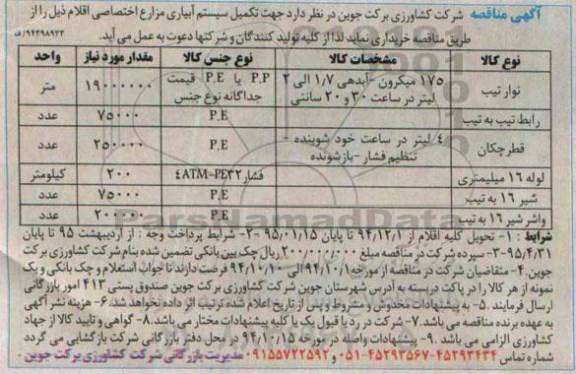 آگهی مناقصه شرکت کشاورزی برکت جوین در نظر دارد جهت تکمیل سیستم آبیاری مزارع اختصاصی اقلام ذیل را از
طریق مناقصه خریداری نماید لذا از کلیه تولید کنندگان و شرکتها دعوت به عمل می آید. ۹۴۳۹۸۹۳۳/ف
نوع کالا مشخصات کالا نوع جنس کالا مقدار مورد نیاز واحد
نوار تیپ ۱۷۵ میکرون -آبدهی ۱/۷ الی ۲ لیتر در ساعت ۳۰ و ۲۰ سانتی P.P یا P.E قیمت جداگانه نوع جنس ۱۹۰۰۰۰۰۰ متر
رابط تیپ به تیپ P.E ۷۵۰۰۰ عدد
قطر چکان ٤ لیتر در ساعت خود شوینده - تنظیم فشار -بازشونده P.E ۲۵۰۰۰۰ عدد
لوله ۱۶ میلیمتری فشار ٤ATM-PE۳۲ ۲۰۰ کیلومتر
شیر ۱۶ به تیپ P.E ۷۵۰۰۰ عدد
واشر شیر ۱۶ به تیپ P.E ۲۰۰۰۰۰ عدد
شرایط : ۱- تحویل کلیه اقلام از ۹۴/۱۲/۱ تا پایان ۹۵/۰۱/۱۵ -۲- شرایط پرداخت وجه : از اردیبهشت ۹۵ تا پایان
۹۵/۴/۳۱ -۳- سپرده شرکت در مناقصه مبلغ ۲۰۰/۰۰۰/۰۰۰ ریال چک بین بانکی تضمین شده بنام شرکت کشاورزی برکت
جوین. ۴- متقاضیان شرکت در مناقصه از مورخه ۹۴/۱۰/۱ الی ۹۴/۱۰/۱۰ فرصت دارند تا جواب استعلام و چک بانکی و یک
نمونه از هر کالا را در پاکت دربسته به آدرس شهرستان جوین شرکت کشاورزی برکت جوین صندوق پستی ۴۱۳ امور بازرگانی
ارسال فرمایند .۵- به پیشنهادات مخدوش و مشروط و پس از تاریخ اعلام شده ترتیب اثر داده نخواهد شد. ۶- هزینه نشر آگهی
به عهده برنده مناقصه می باشد. ۷- شرکت در رد یا قبول یک یا کلیه پیشنهادات مختار می باشد. ۸- گواهی و تایید کالا از جهاد
کشاورزی الزامی می باشد .۹- پیشنهادات واصله در مورخه ۹۴/۱۰/۱۵ در محل دفتر بازرگانی شرکت بازگشایی می گردد
شماره تماس ۴۵۲۹۳۴۳۴-۴۵۲۹۳۵۶۷-۰۵۱ و ۰۹۱۵۵۷۲۲۵۹۲ مدیریت بازرگانی شرکت کشاورزی برکت جوین
ParsNamadData